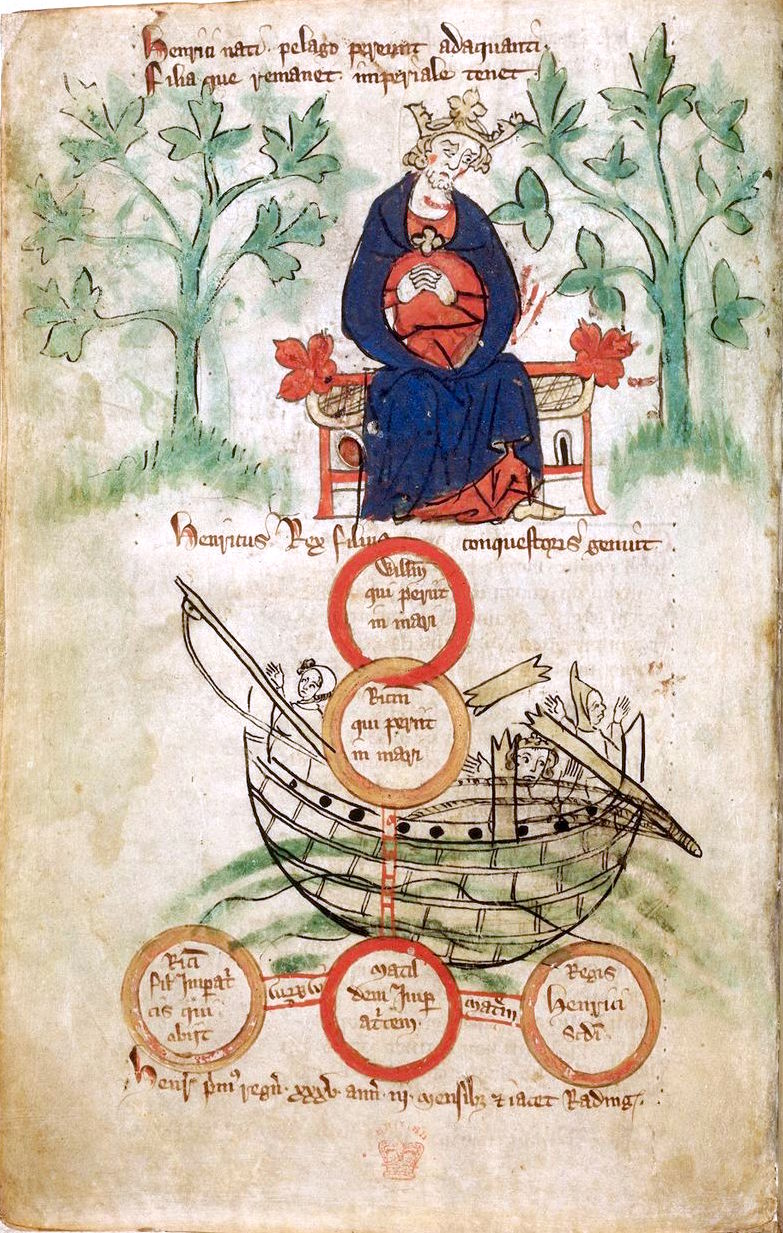 Henrici nati pelago pereunt adaquanti
Filia que remanet imperiale tenet
Henricus Rex filius conquestoris genuit
Willm
qui periit
in mari
Ricm
qui periit
in mari
Ricī
fir̄ Impat̄
cis qui
obijt
matil
dem Imp
at̄cem
mat̄m
Regis
Henrici
Scdi
Henr pm regn xxxv ann iij mensibȝ ⁊ iacet Rading